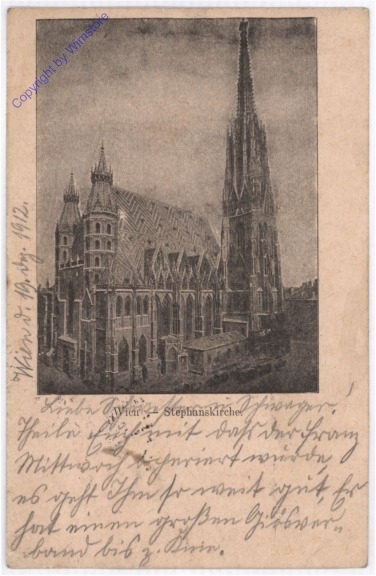 Copyright by Winstore
Wien d. 19. Dez. 1912.
Wien — Stephanskirche.
Liebe Schwager!
Theile Euch mit daß der Franz
Mittwoch operiert wurde,
es geht Ihm so weit gut, Er
hat einen großen
band bis z. Knie.